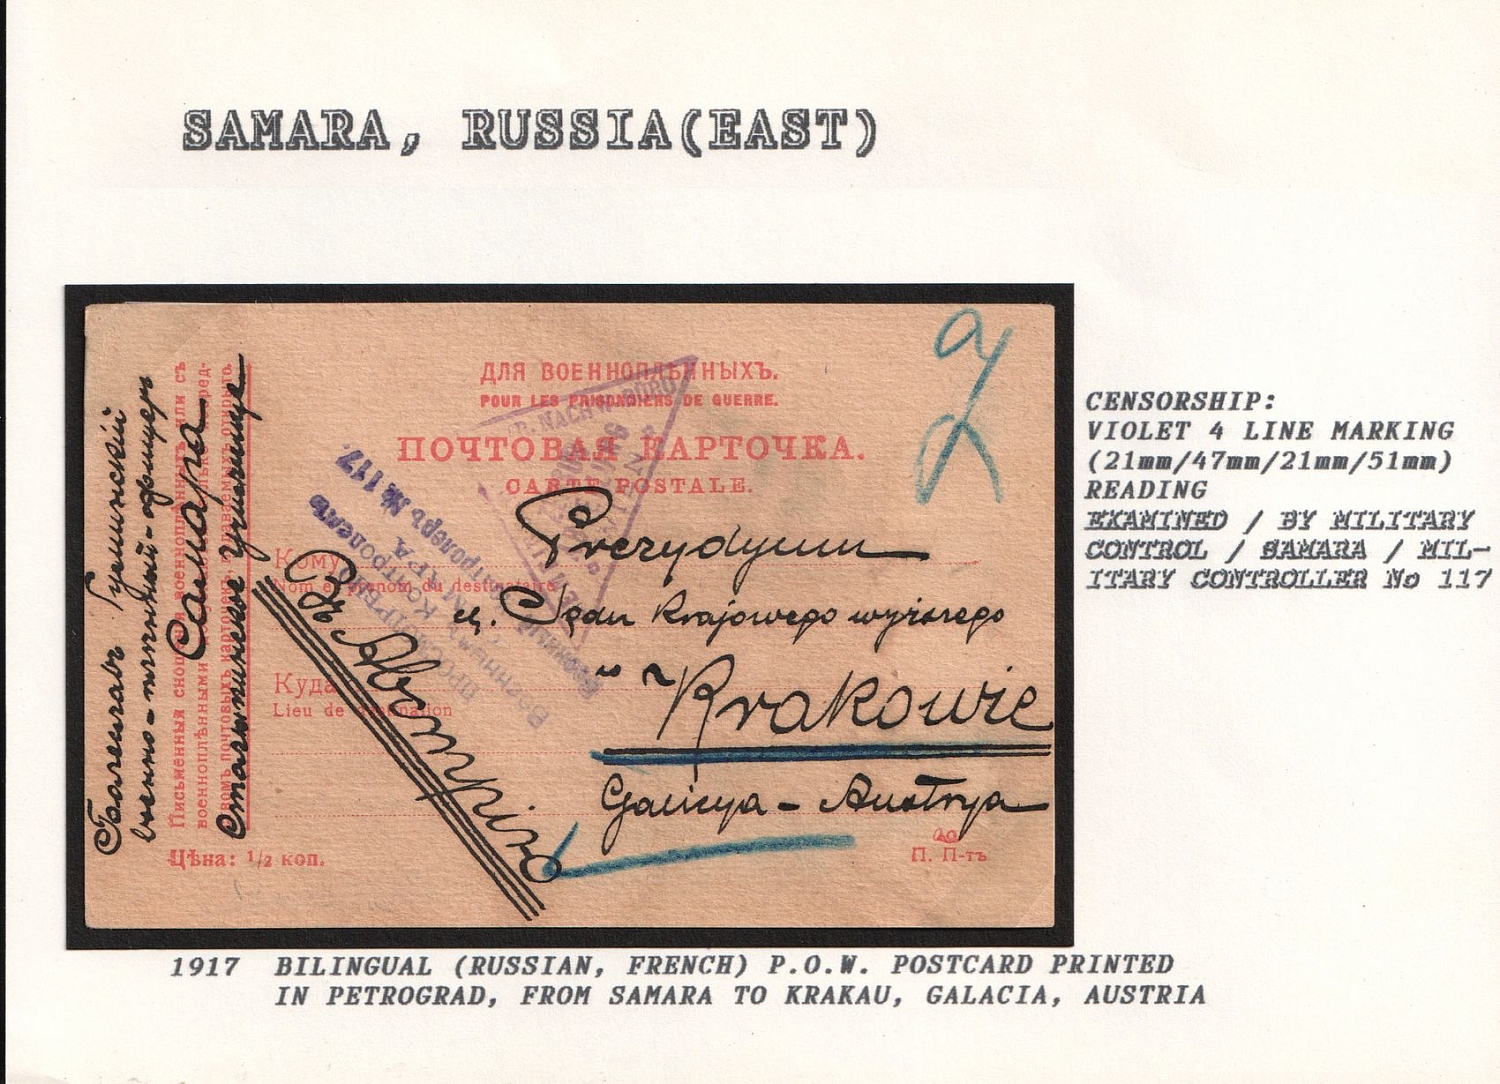 SAMARA, RUSSIA(EAST)
ДЛЯ ВОЕННОПЛѢННЫХЪ.
POUR LES PRISONNIERS DE GUERRE.
ПОЧТОВАЯ КАРТОЧКА.
CARTE POSTALE.
Кому
Nom et prénom du destinataire
Prezydyum
Sądu Krajowego wyższego
Куда
Lieu de destination
w Krakowie
Galicya - Austrya
Въ Австрію
Цѣна: 1/2 коп.
П. П-тъ
военно-плѣнный-офицеръ
Самара
Письменныя сношенія военноплѣнныхъ или съ
военноплѣнными
ПРОСМОТРѢНО
Военнымъ Контролемъ
САМАРА
Военный Контролеръ № 117.
NACHW. BÜRO
CENSORSHIP:
VIOLET 4 LINE MARKING
(21mm/47mm/21mm/51mm)
READING
EXAMINED / BY MILITARY
CONTROL / SAMARA / MIL-
ITARY CONTROLLER No 117
1917 BILINGUAL (RUSSIAN, FRENCH) P.O.W. POSTCARD PRINTED
IN PETROGRAD, FROM SAMARA TO KRAKAU, GALACIA, AUSTRIA